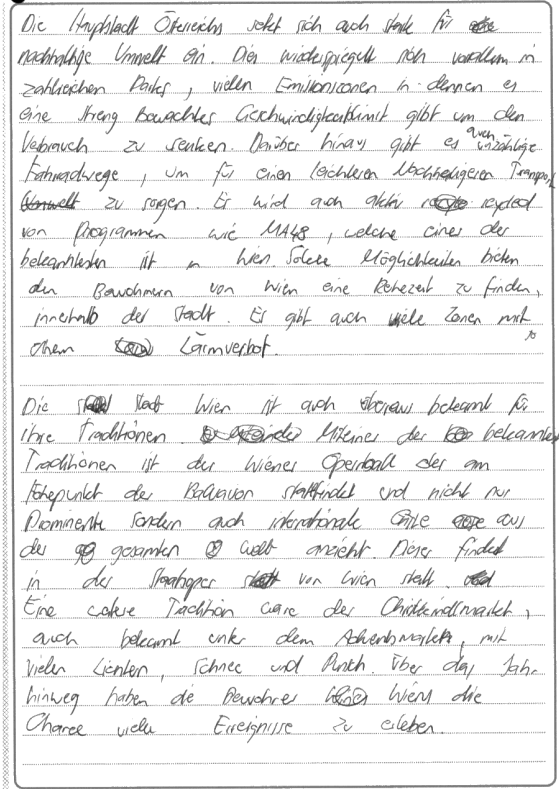 Die Hauptstadt Österreichs setzt sich auch stark für
nachhaltige Umwelt ein. Dies wiederspiegelt sich vorallem in
zahlreichen Parks, vielen Emissionszonen in dennen es
eine streng Bewachtes Geschwindigkeitslimit gibt um den
Verbrauch zu senken. Darüber hinaus gibt es auch unzählige
Fahrradwege, um für einen leichteren Nachhaltigeren Transport
zu sorgen. Es wird auch aktiv recycled
von Programmen wie MA48, welche eines der
bekanntesten ist in Wien. Solche Möglichkeiten bieten
den Bewohnern von Wien eine Ruhezeit zu finden,
innerhalb der Stadt. Es gibt auch viele Zonen mit
einem Lärmverbot.
Die Stadt Wien ist auch überaus bekannt für
ihre Traditionen. Miteines der bekannten
Traditionen ist der Wiener Opernball der am
Höhepunkt der stattfindet und nicht nur
Prominente sondern auch internationale Gäste aus
der gesamten Welt anzieht. Dieser findet
in der Staatsoper von Wien statt.
Eine weitere Tradition wäre der Christkindlmarkt,
auch bekannt unter dem Adventsmarkt, mit
vielen Lientern, Schnee und Punsh. Über das Jahr
hinweg haben die Bewohner Wiens die
Chance viele Ereignisse zu erleben.